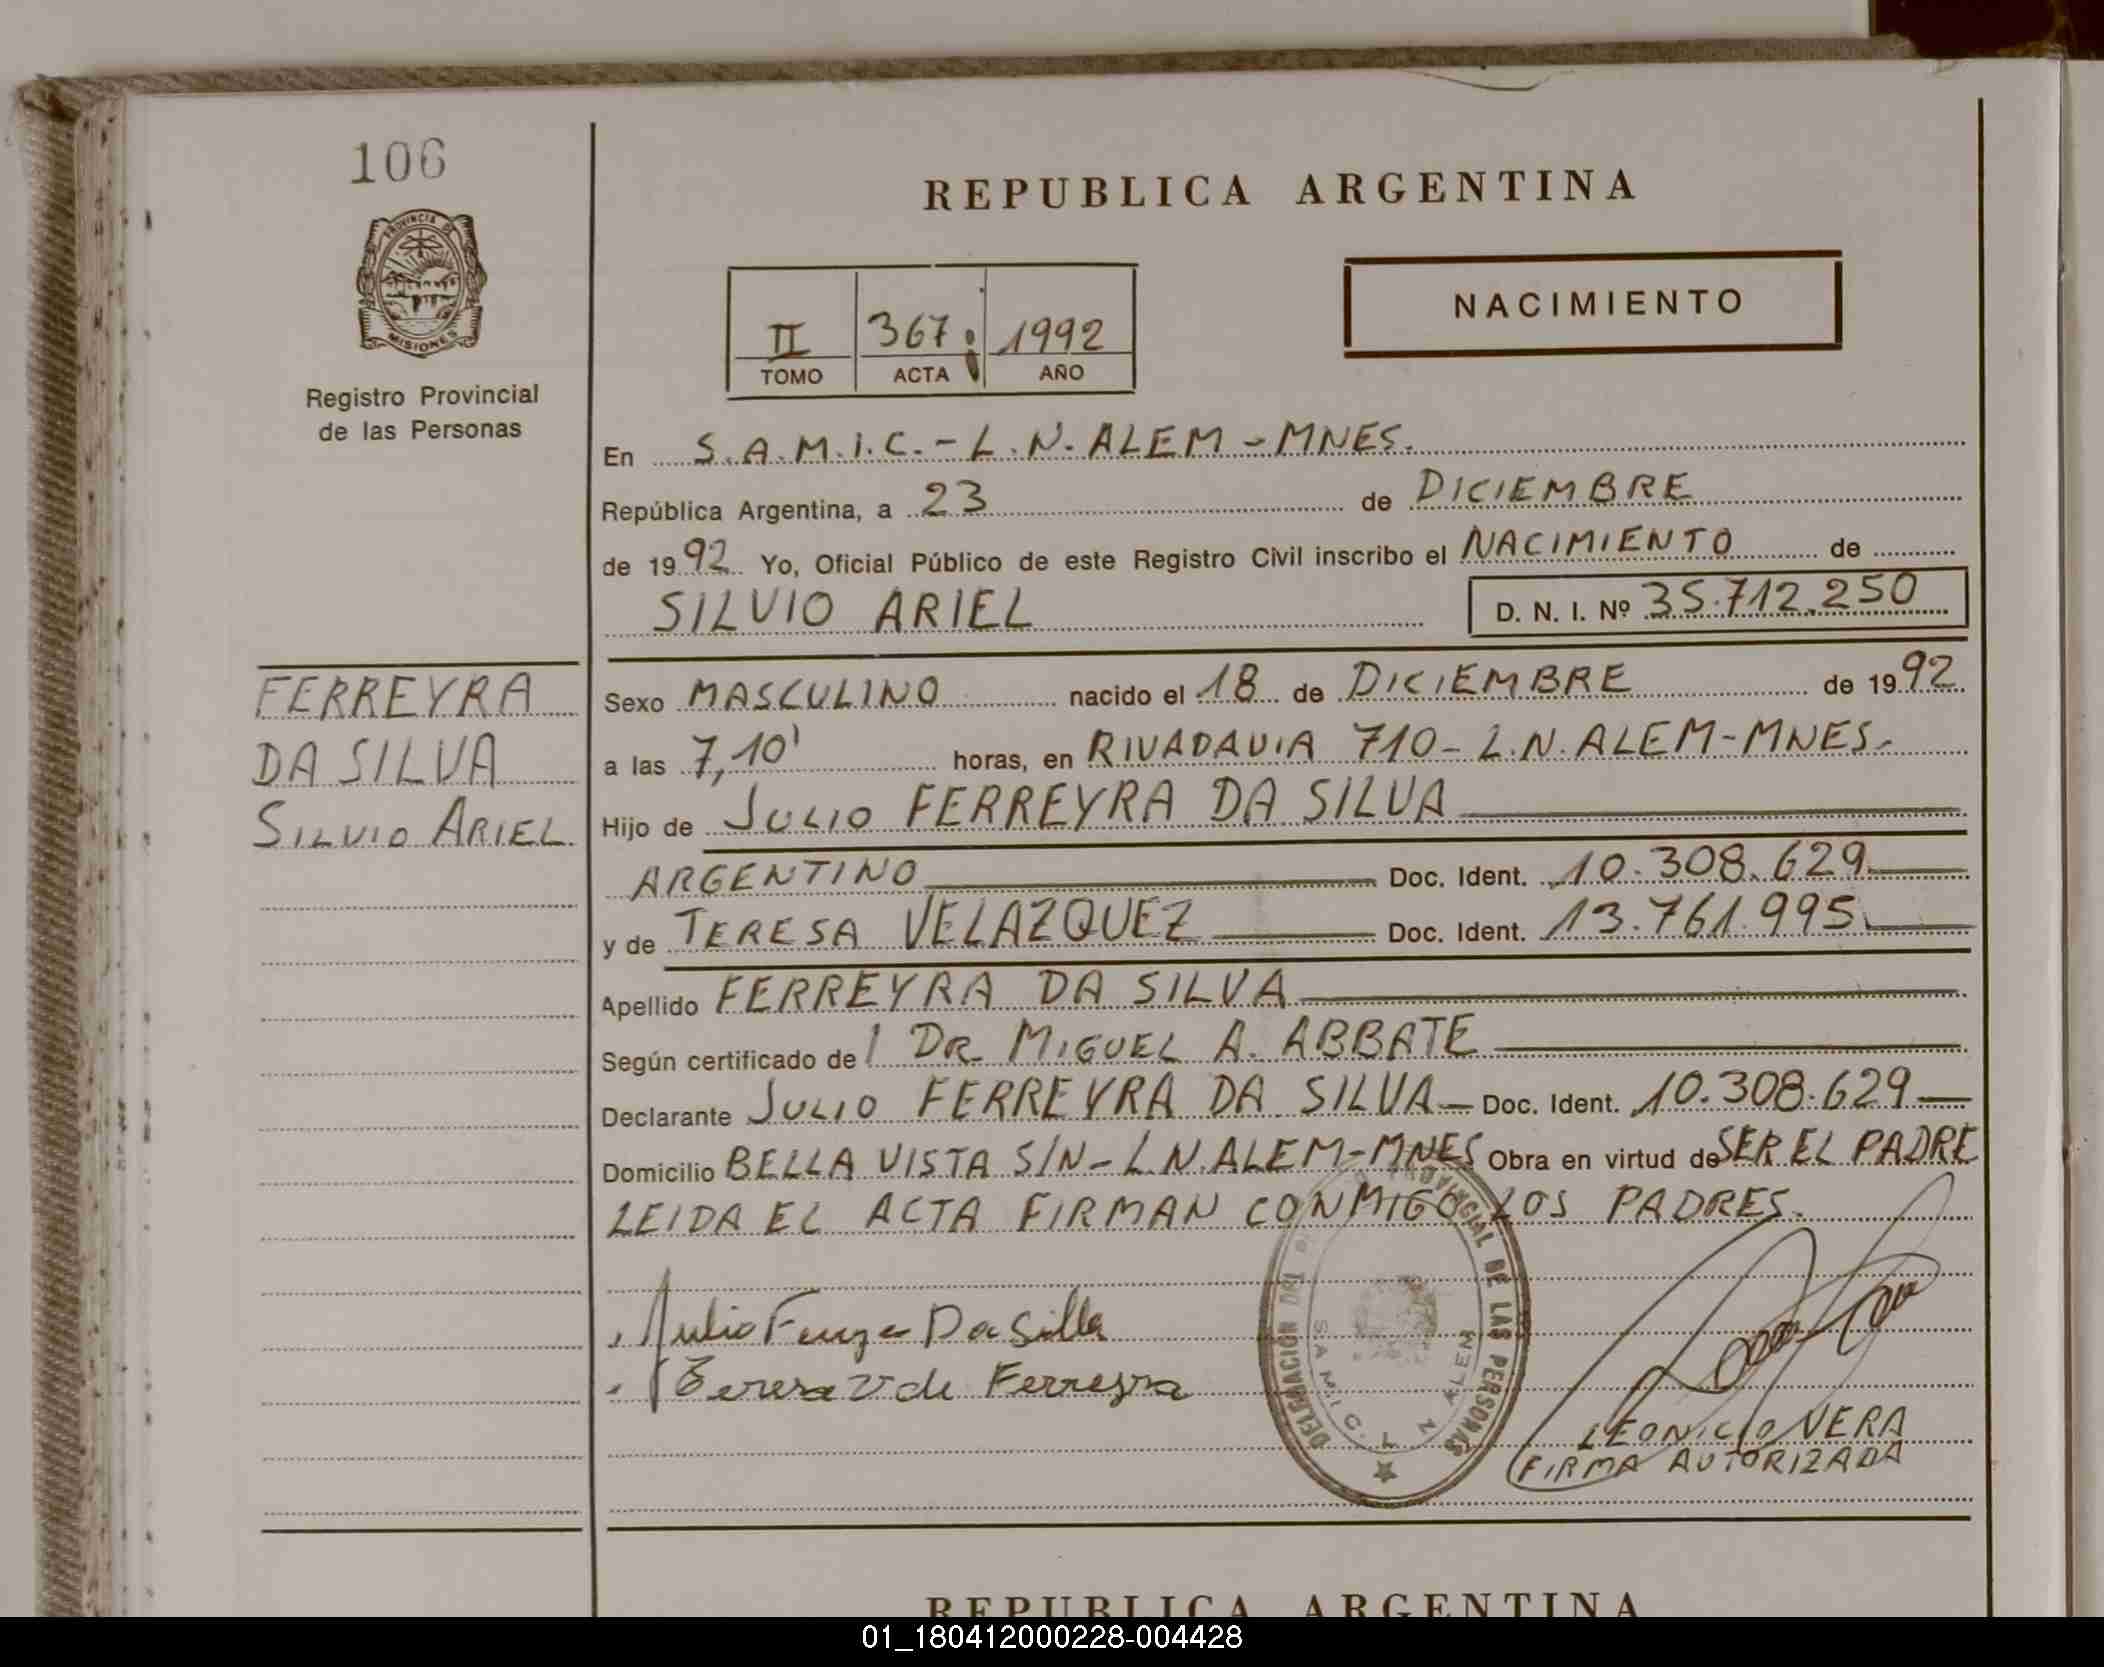 106
PROVINCIA DE
MISIONES
Registro Provincial
de las Personas
REPUBLICA ARGENTINA
II 367 1992
TOMO ACTA AÑO
NACIMIENTO
En S.A.M.I.C. - L.N. ALEM - MNES.
República Argentina, a 23 de DICIEMBRE
de 1992 Yo, Oficial Público de este Registro Civil inscribo el NACIMIENTO de
SILVIO ARIEL D. N. I. Nº 35.712.250
FERREYRA
DA SILVA
SILVIO ARIEL.
Sexo MASCULINO nacido el 18 de DICIEMBRE de 1992
a las 7,10' horas, en RIVADAVIA 710 - L.N. ALEM - MNES.
Hijo de JULIO FERREYRA DA SILVA
ARGENTINO Doc. Ident. 10.308.629
y de TERESA VELAZQUEZ Doc. Ident. 13.761.995
Apellido FERREYRA DA SILVA
Según certificado de DR. MIGUEL A. ABBATE
Declarante JULIO FERREYRA DA SILVA - Doc. Ident. 10.308.629
Domicilio BELLA VISTA S/N - L.N. ALEM - MNES Obra en virtud de SER EL PADRE
LEIDA EL ACTA FIRMAN CONMIGO LOS PADRES.
Julio Da Silla
Teresa V de Ferreyra
DELEGACIÓN DE LAS PERSONAS
S A M I C. L N ALEM
LEONICIO VERA
FIRMA AUTORIZADA
REPUBLICA ARGENTINA
01_180412000228-004428